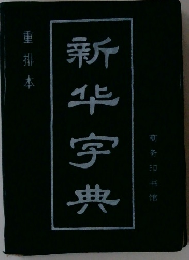 新华字典
重排本
商务印书馆